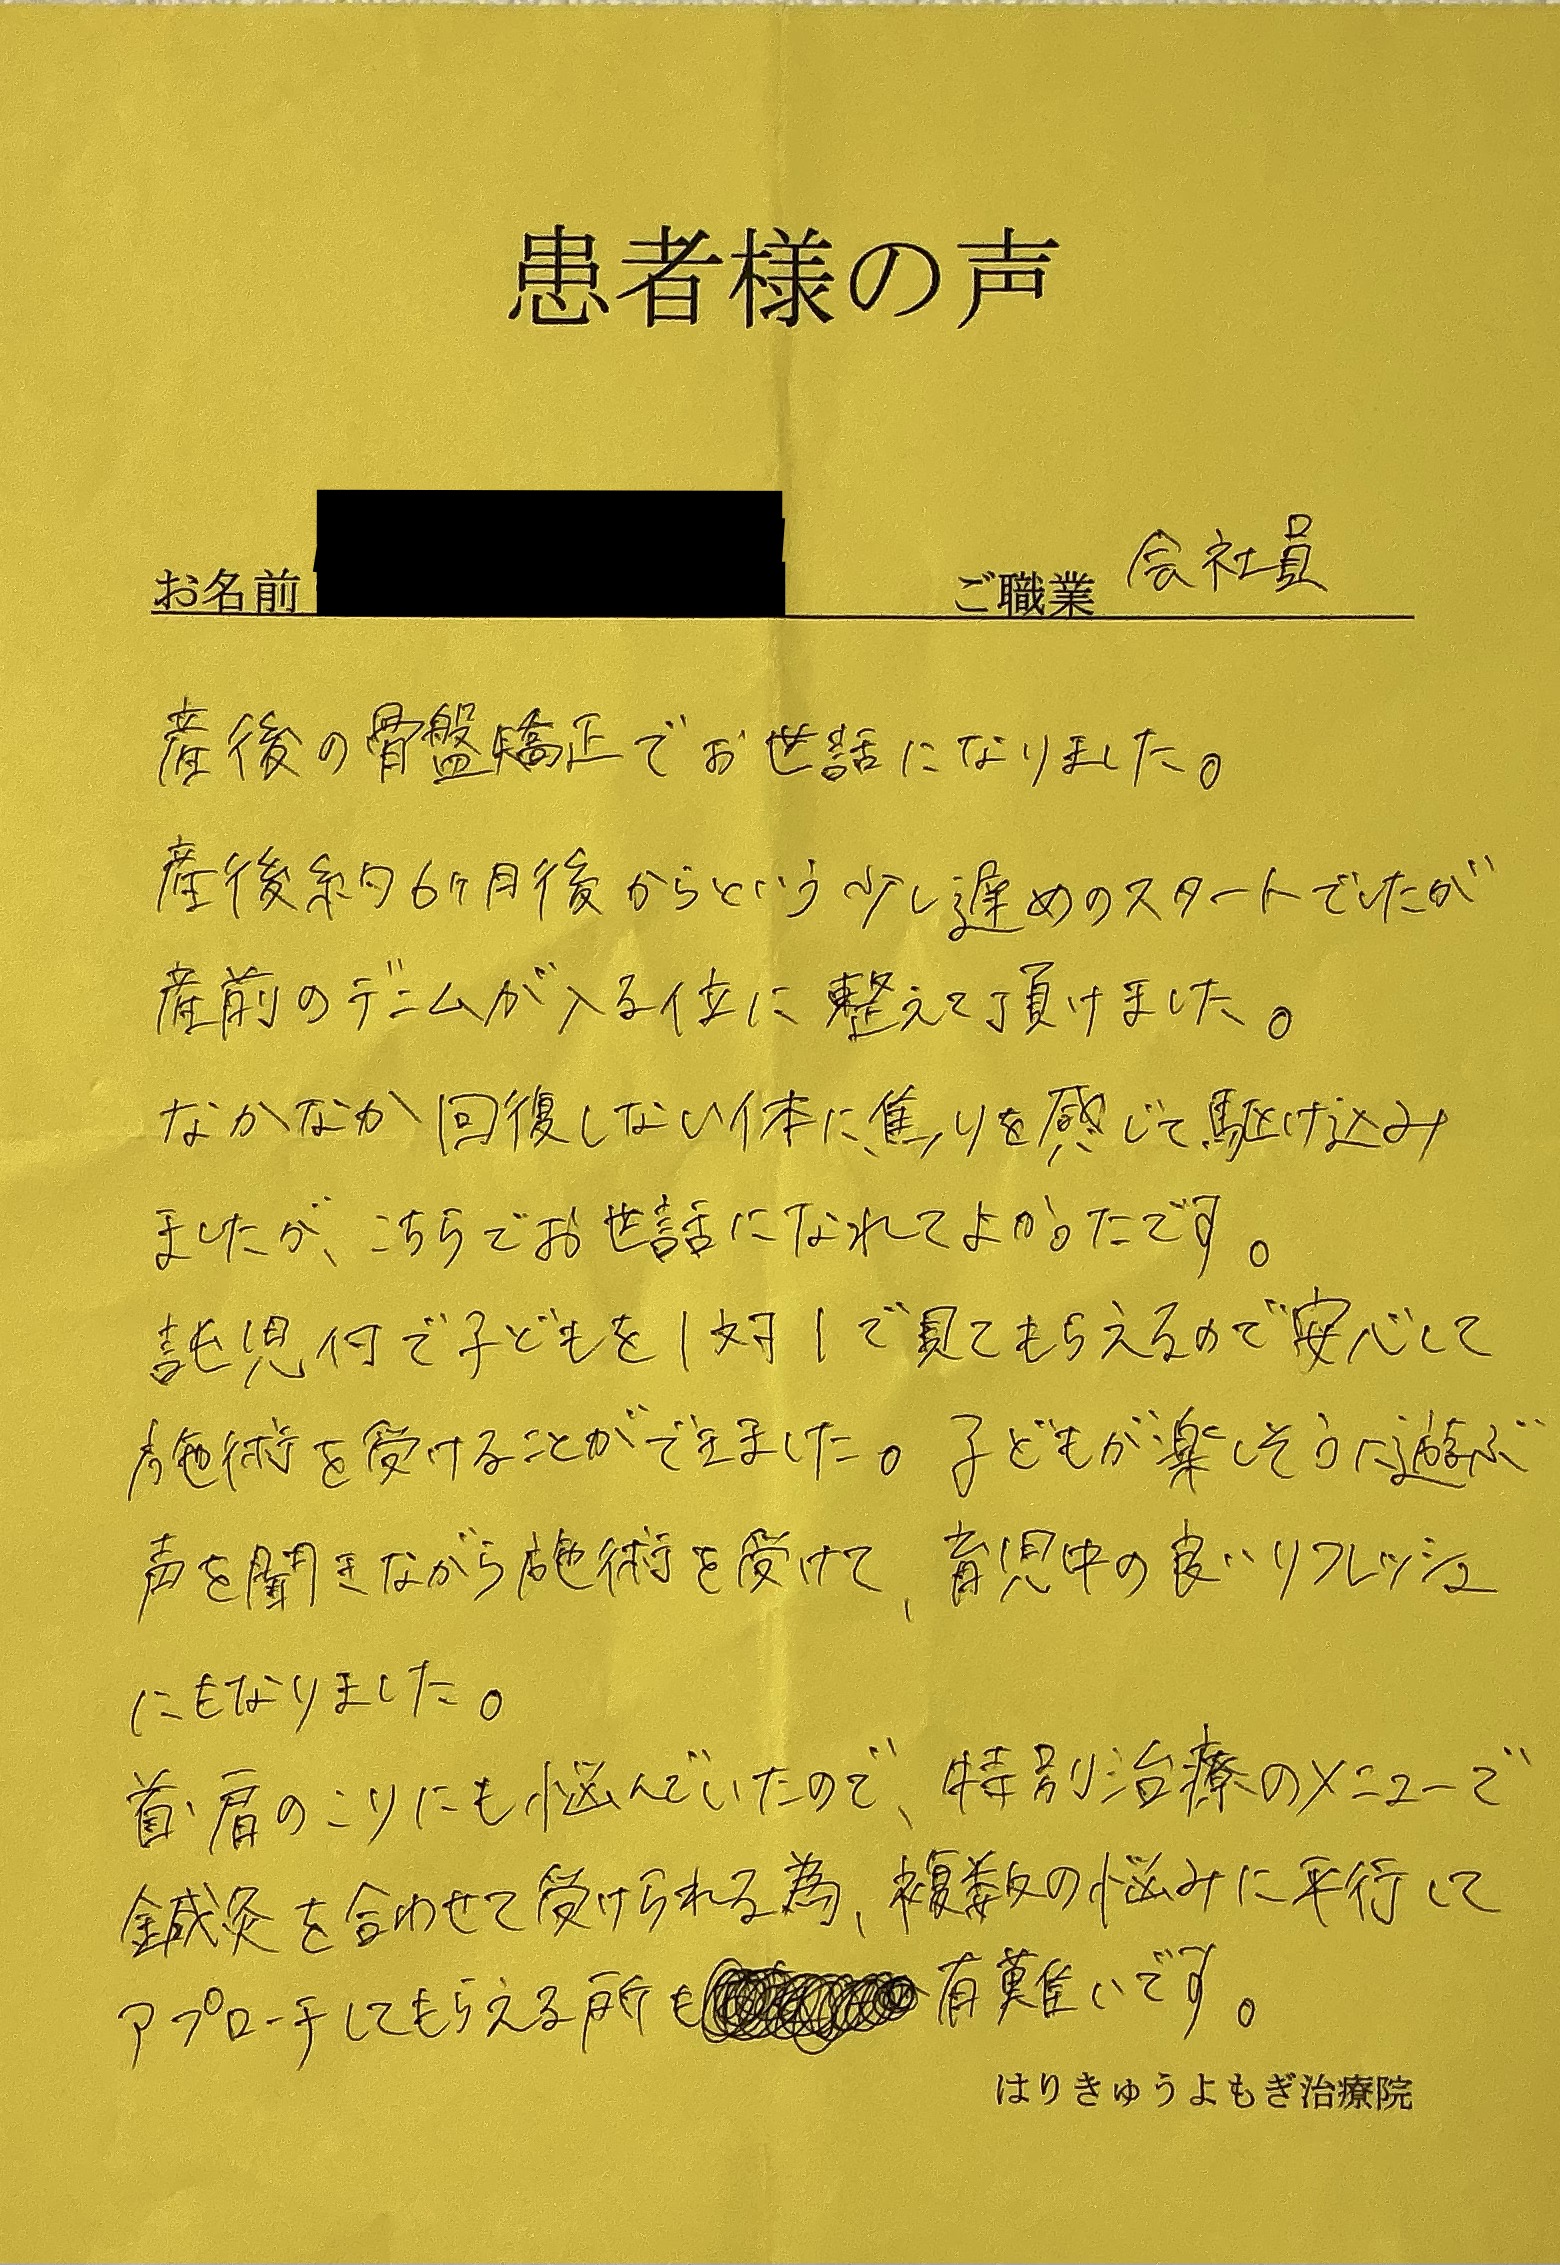 患者様の声
お名前 ご職業 会社員
産後の骨盤矯正でお世話になりました。
産後約6ヶ月後からという少し遅めのスタートでしたが
産前のデニムが入る位に整えて頂けました。
なかなか回復しない体に焦りを感じて駆け込み
ましたが、こちらでお世話になれてよかったです。
託児付で子どもを1対1で見てもらえるので安心して
施術を受けることができました。子どもが楽しそうに遊ぶ
声を聞きながら施術を受けて、育児中の良いリフレッシュ
にもなりました。
首・肩のこりにも悩んでいたので、特別治療のメニューで
鍼灸を合わせて受けられる為、複数の悩みに平行して
アプローチしてもらえる所も有難いです。
はりきゅうよもぎ治療院